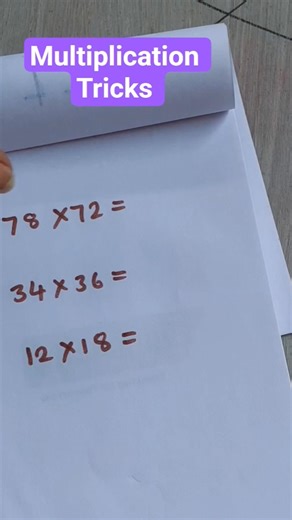 Multiplication
Tricks
78 × 72 =
34 × 36 =
12 × 18 =